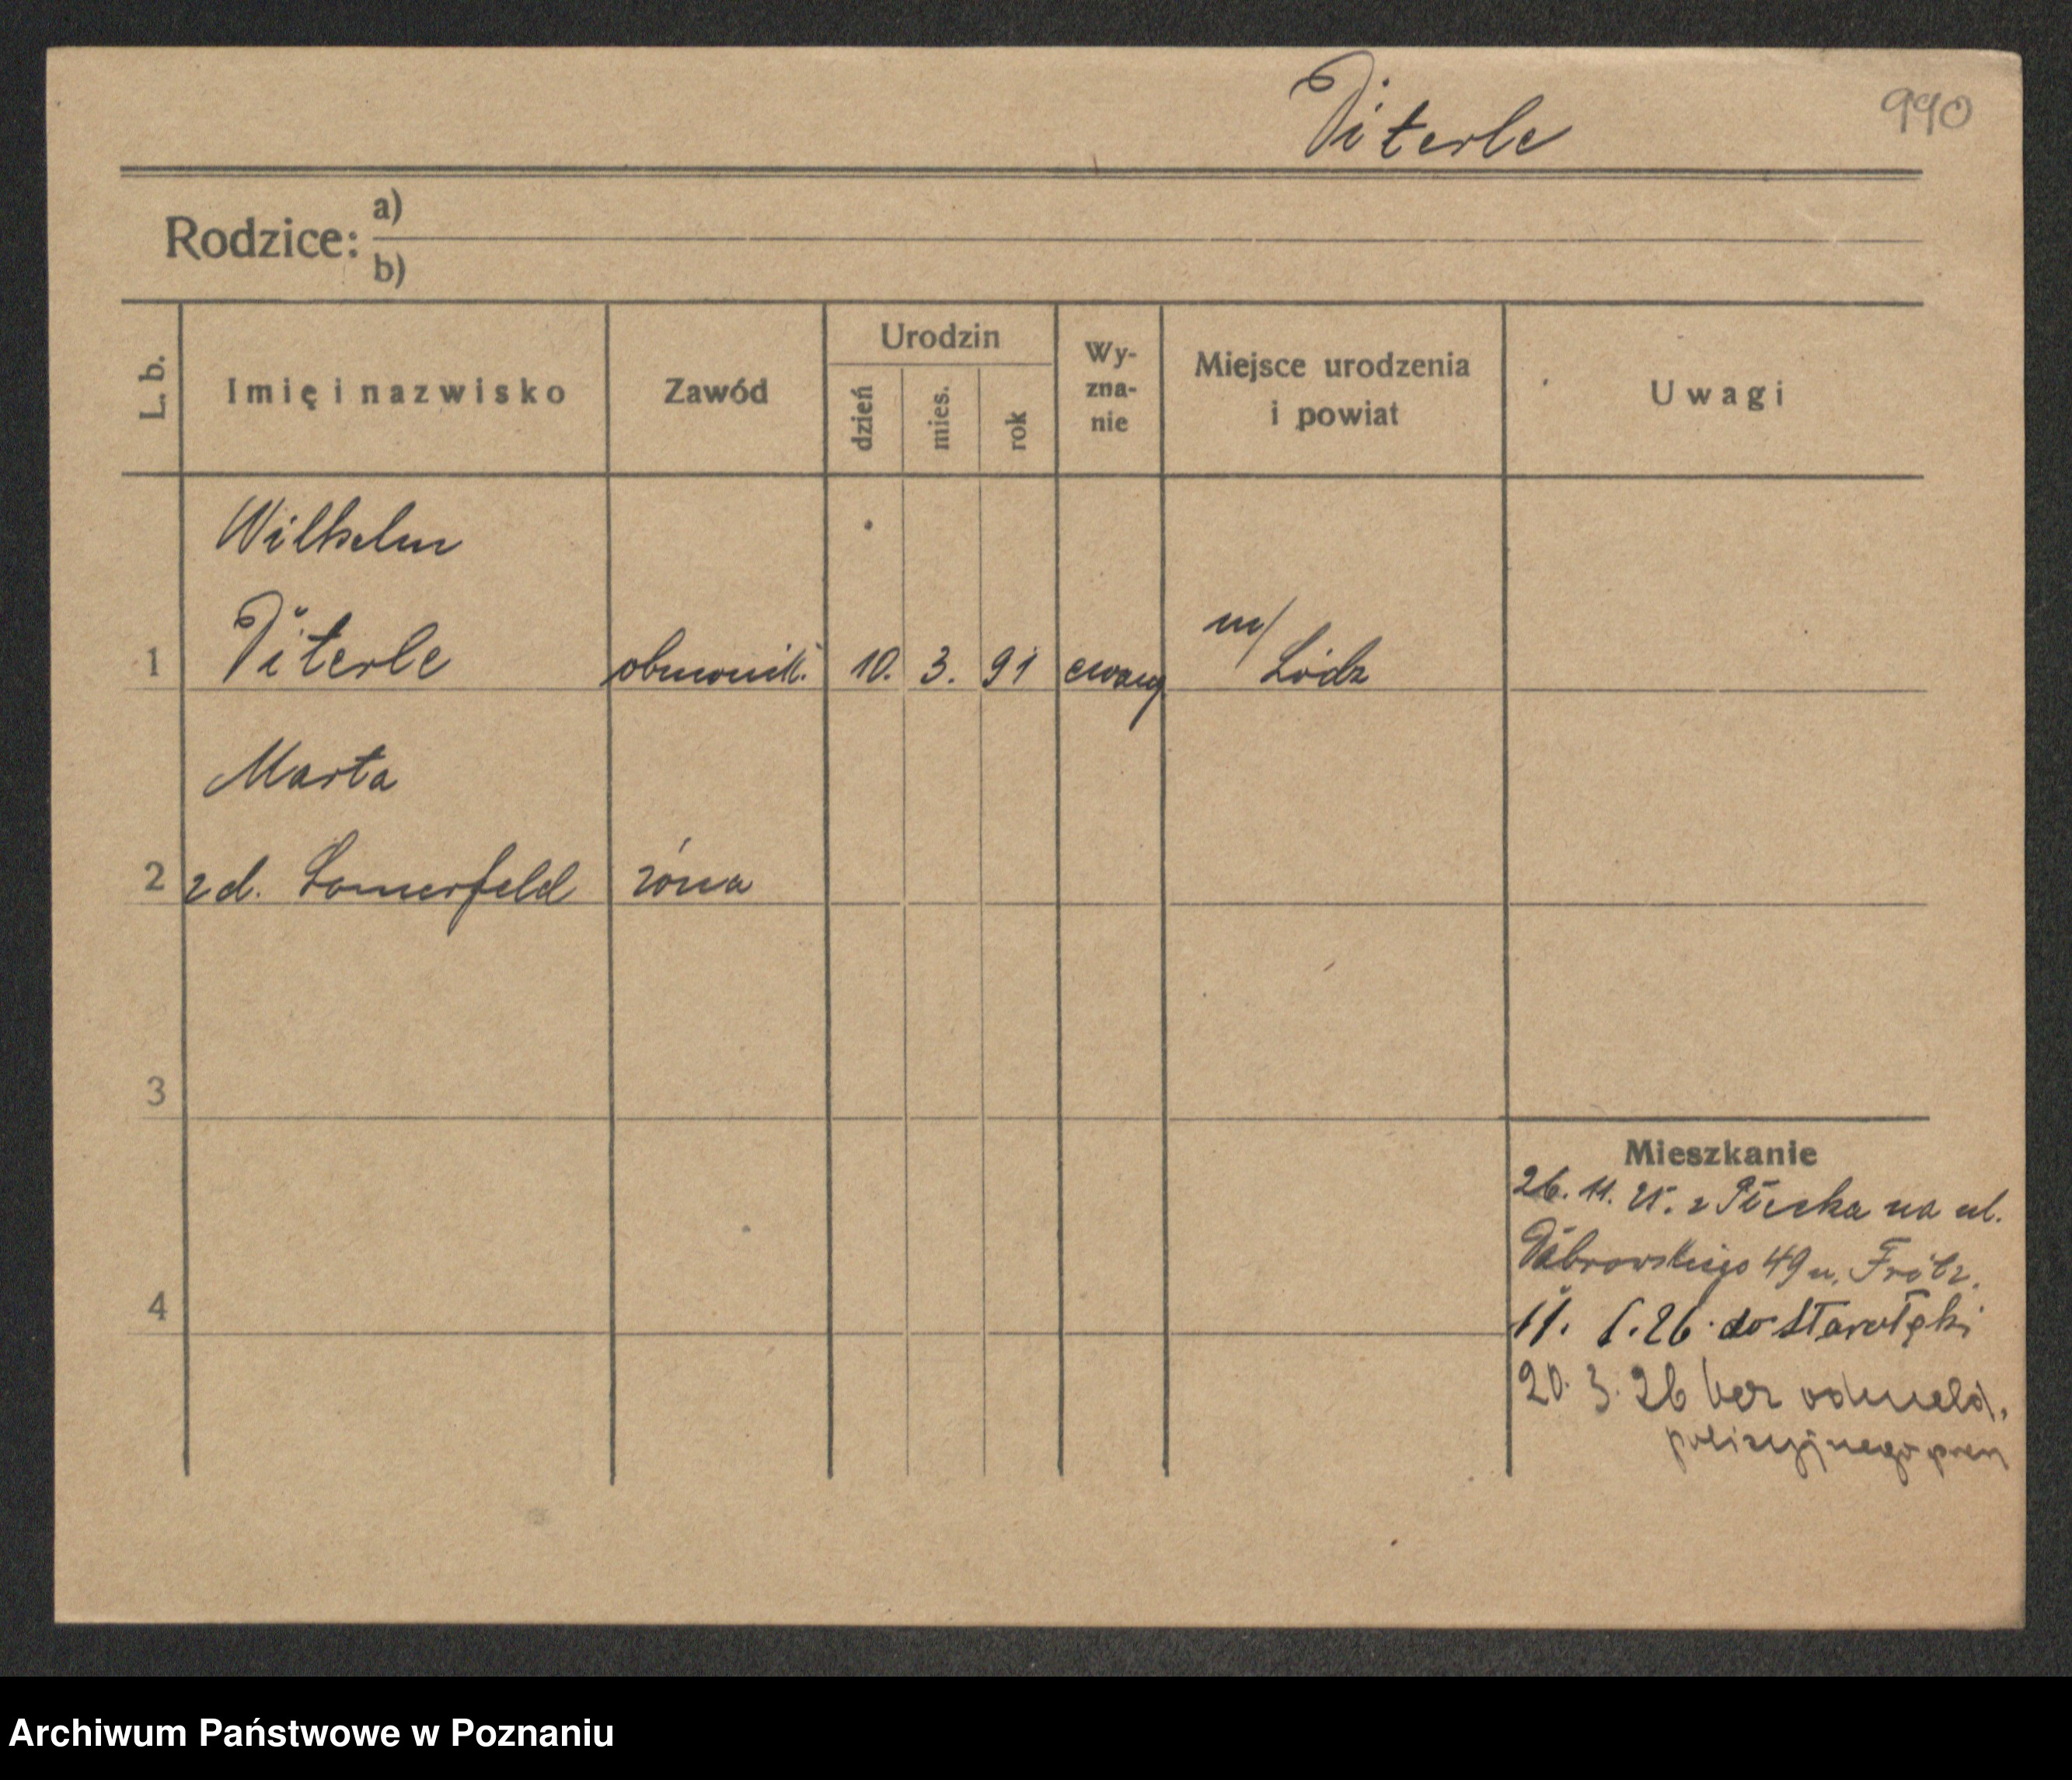 Diterle
990
Rodzice:
a)
b)
L. b.
Imię i nazwisko
Zawód
Urodzin
dzień
mies.
rok
Wy-
zna-
nie
Miejsce urodzenia
i powiat
Uwagi
Wilhelm
1 Diterle obuwnik. 10. 3. 91 ewang
m/
Łódz
Marta
2 zd. Somerfeld żona
3
4
Mieszkanie
26. 11. 25. z Płocka na ul.
Dąbrowskiego 49 u.
11. 1. 26. do Starołęki
20. 3. 26 bez odmeld.
policyjnego
Archiwum Państwowe w Poznaniu